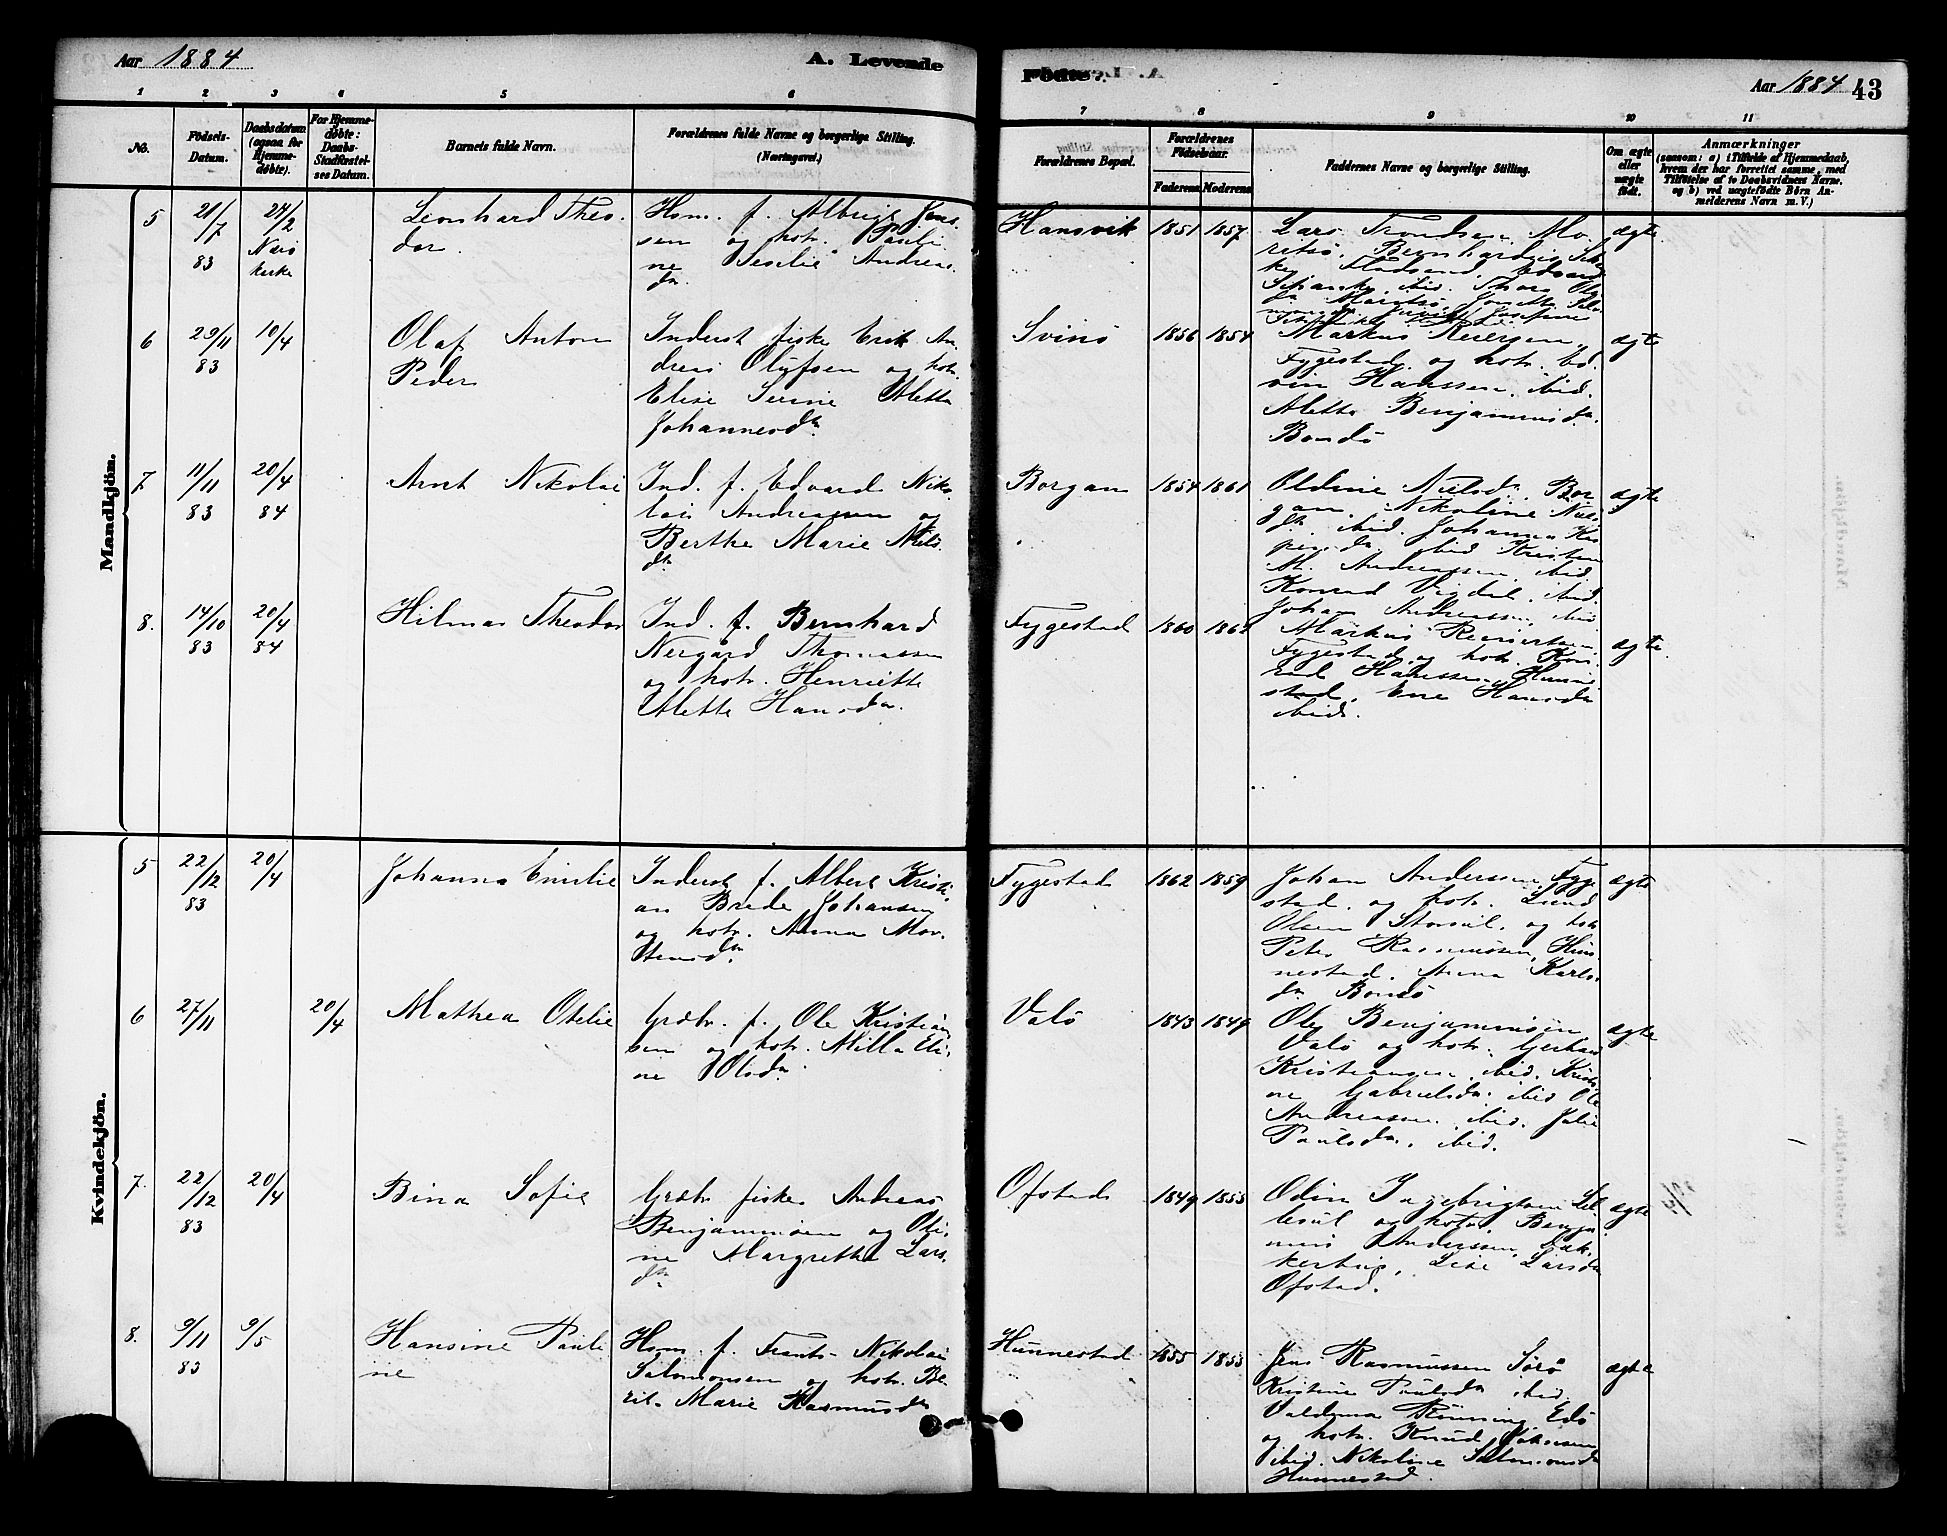 Aar 1884
A. Levende
Fødte.
Aar 1884
43
1
2
3
4
5
6
7
8
9
10
11
No.
Fødsels-
Datum.
Daabsdatum
(ogsaa for
Hjemme-
døbte).
For Hjemme-
døbte:
Daabs-
Stadfæstel-
ses Datum.
Barnets fulde Navn.
Forældrenes fulde Navne og borgerlige Stilling.
(Næringsvei.)
Forældrenes Bopæl.
Forældrenes
Fødselsaar.
Faderens
Moderens
Faddernes Navne og borgerlige Stilling.
Om ægte
eller
uægte
født.
Anmærkninger
(saasom: a) i Tilfælde af Hjemmedaab,
hvem der har forrettet samme, med
Tilføielse af to Daabsvidners Navne,
og b) ved uægtefødte Børn An-
melderens Navn m. V.)
Mandkjön.
5
21/7
83
24/2
Nærö
kirke
Leonhard Theo-
dor
Hsm. f. Albrigt Jens-
sen og hstr. Pauli
ne Cesilie Andreas
dr.
Hansvik
1851
1857
Lars Trondsen
ægte
6
29/11
83
10/4
Olaf Anton
Peder
Inderst fisker Erik An-
dreas Olufsen og hstr.
Elise Serine Aletta
Johannesdr.
Svinö
1856
1854
Markus Reiersen,
Fygestad og hstr. Ed-
vin Hanssen, ibid.
Alette Benjaminsdr.
Bondö
ægte
7
11/11
83
20/4
84
Arnt Nikolai
Ind. f. Edvard Niko-
lai Andreassen og
Berthe Marie Niels
dr.
Borgan
1854
1861
Oldine Nielsdr. Bor
gan, Nikoline Niels
dr. ibid. Johanna Kas
persdr. ibid Kristen
M. Andreassen, ibid
Konrad Vigdal, ibid.
Johan Andreassen, ibid
ægte
8.
14/10
83
20/4
84
Hilmar Theodor
Ind. f. Bernhard
Neegård Thomassen
og hstr. Henriette
Alette Hansdr.
Fygestad
1860
Markus Reiersen
Fygestad og hstr. Kon
rad Hanssen, Hunne
stad, Ene Hansdr.
ibid.
ægte
Kvindekjön.
5
22/12
83
20/4
Johanna Emilie
Inderst f. Albert Kristi-
an Brede Johansen
og hstr. Anna Mor-
tensdr.
Fygestad
1862
1859
Johan Anderssen, Fyge
stad og hstr.
Olsen Storsul, og hstr
Peter Rasmussen, Hun-
nestad. Anna Karls-
dr. Bondö
ægte
6
27/11
20/4
Mathea Otelie
Grdbr. f. Ole Kristian
sen og hstr. Milla Eli-
ne Olsdr.
Valö
1843
1849
Ole Benjaminsen
Valö og hstr. Gerhard
Kristiansen, ibid. Kristi-
ne Gabrielsdr. ibid Ole
Andreassen ibid. Julie
Paulsdr. ibid.
ægte
7.
22/12
83
20/4
Bina Sofie
Grdbr fisker Andreas
Benjaminsen og Oli-
ne Margrethe Lars-
dr.
Ofstad
1849
1853
Odin Ingebrigtsen Lil
lesul og hstr. Benja
min Anderssen,
Lise Larsdr
Ofstad.
ægte
8.
9/11
83
9/5
Hansine Pauli
ne
Hsm. f. Frants Nikolai
Salomonsen og hstr. Be-
rit Marie Rasmusdr
Hunnestad
1855
1853
Jens Rasmussen Sørö
Kristine Paulsdr ibid
Valdema Rönning, Edö
og hstr. Knud Johnsen
ibid. Nikoline Salomonsdr
Hunnestad.
ægte